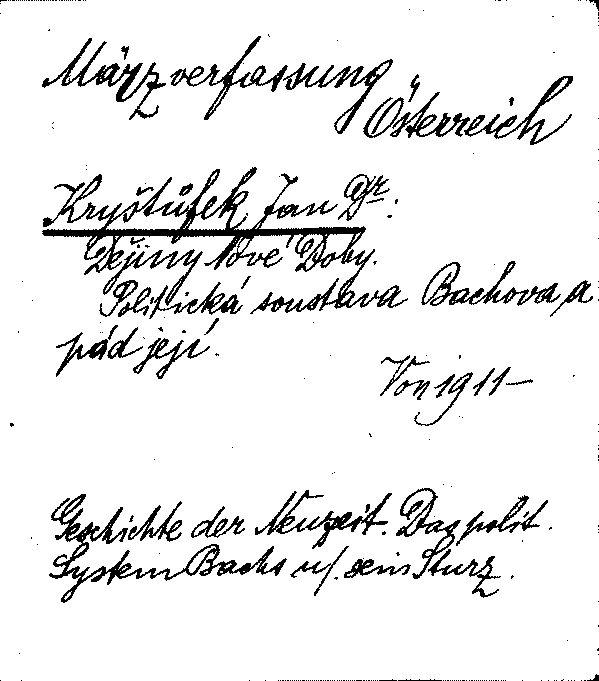 Märzverfassung
Österreich
Kryštůfek Jan Dr.:
Dějiny Nové Doby.
Politická soustava Bachova a
pád její.
Von 1911 –
Geschichte der Neuzeit. Das polit.
System Bachs u/. sein Sturz.